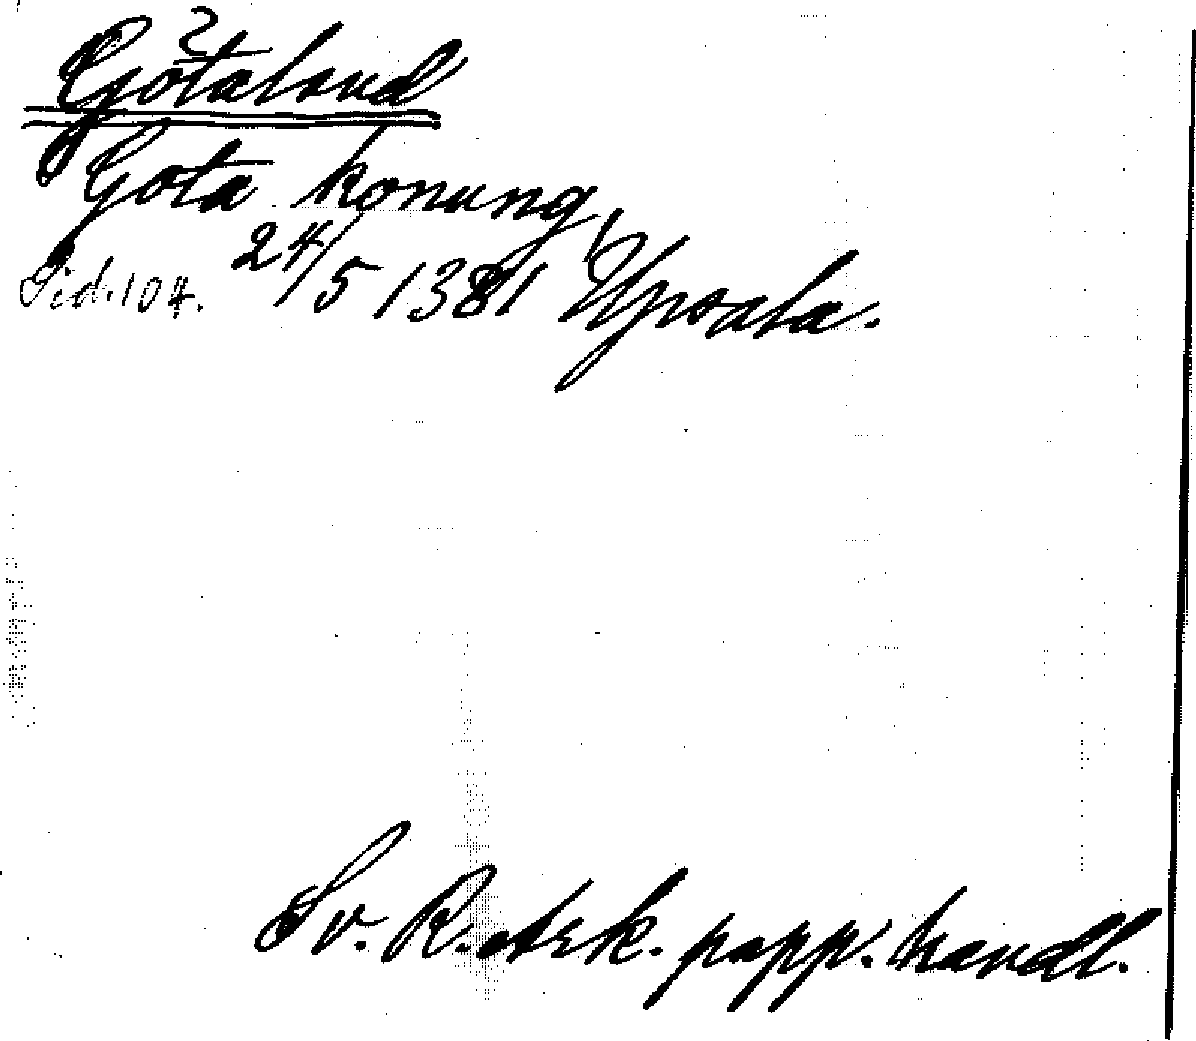 2
Götaland
Göta konung
Sid. 104. 24/5 1381 Upsala.
Sv. R. ark. papp. handl.